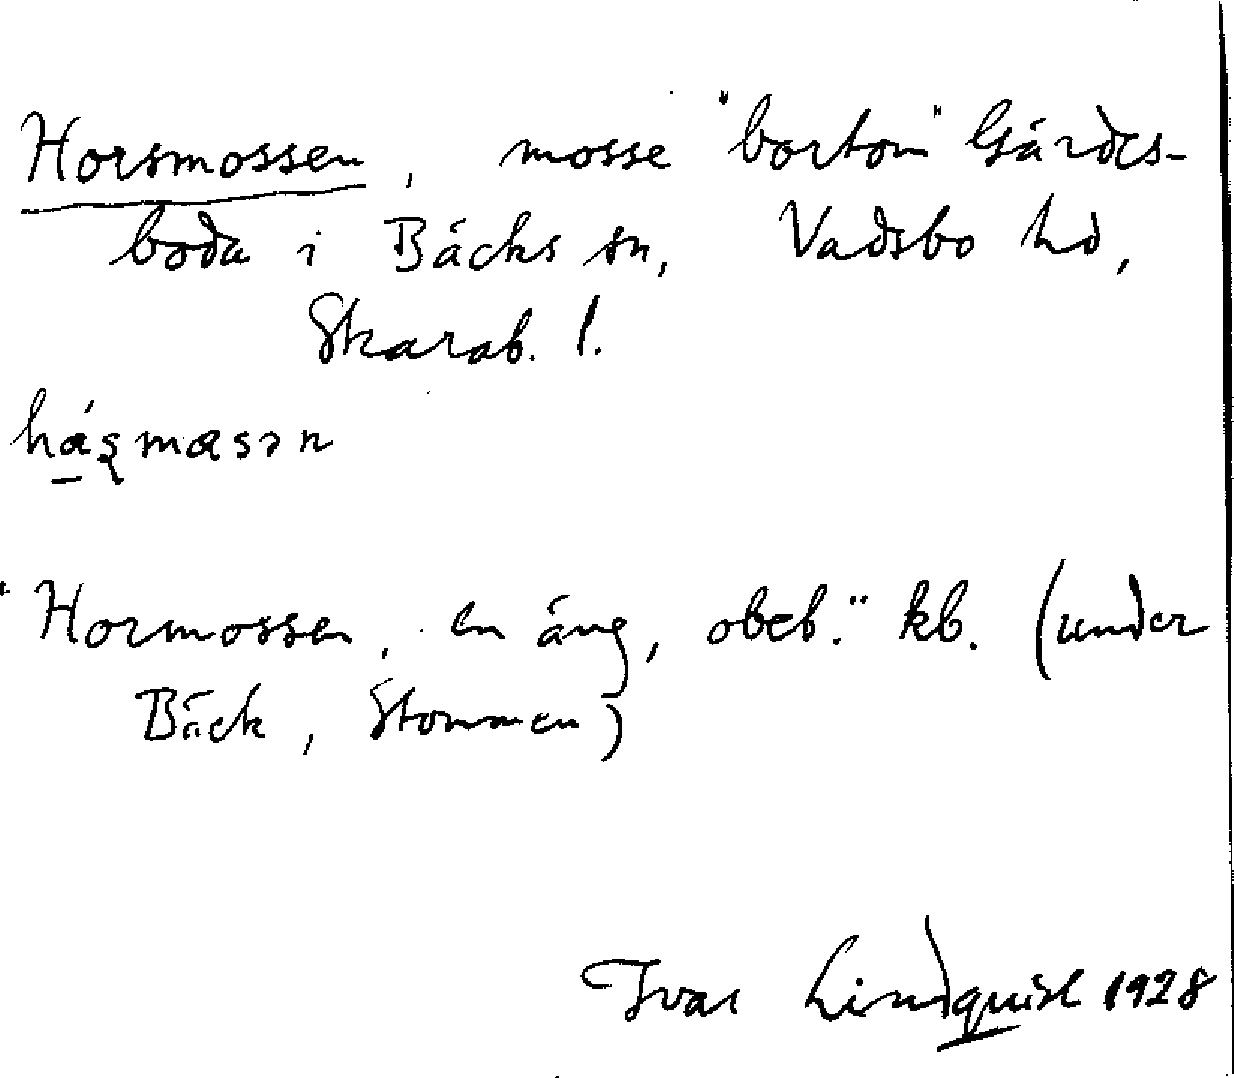 Horsmossen, mosse "bortom" Gärdes-
boda i Bäcks sn, Vadsbo hd,
Skarab. l.
hásmɑsən
"Hormossen, en äng, obeb." kb. (under
Bäck, Stommen)
Ivar Lindquist 1928